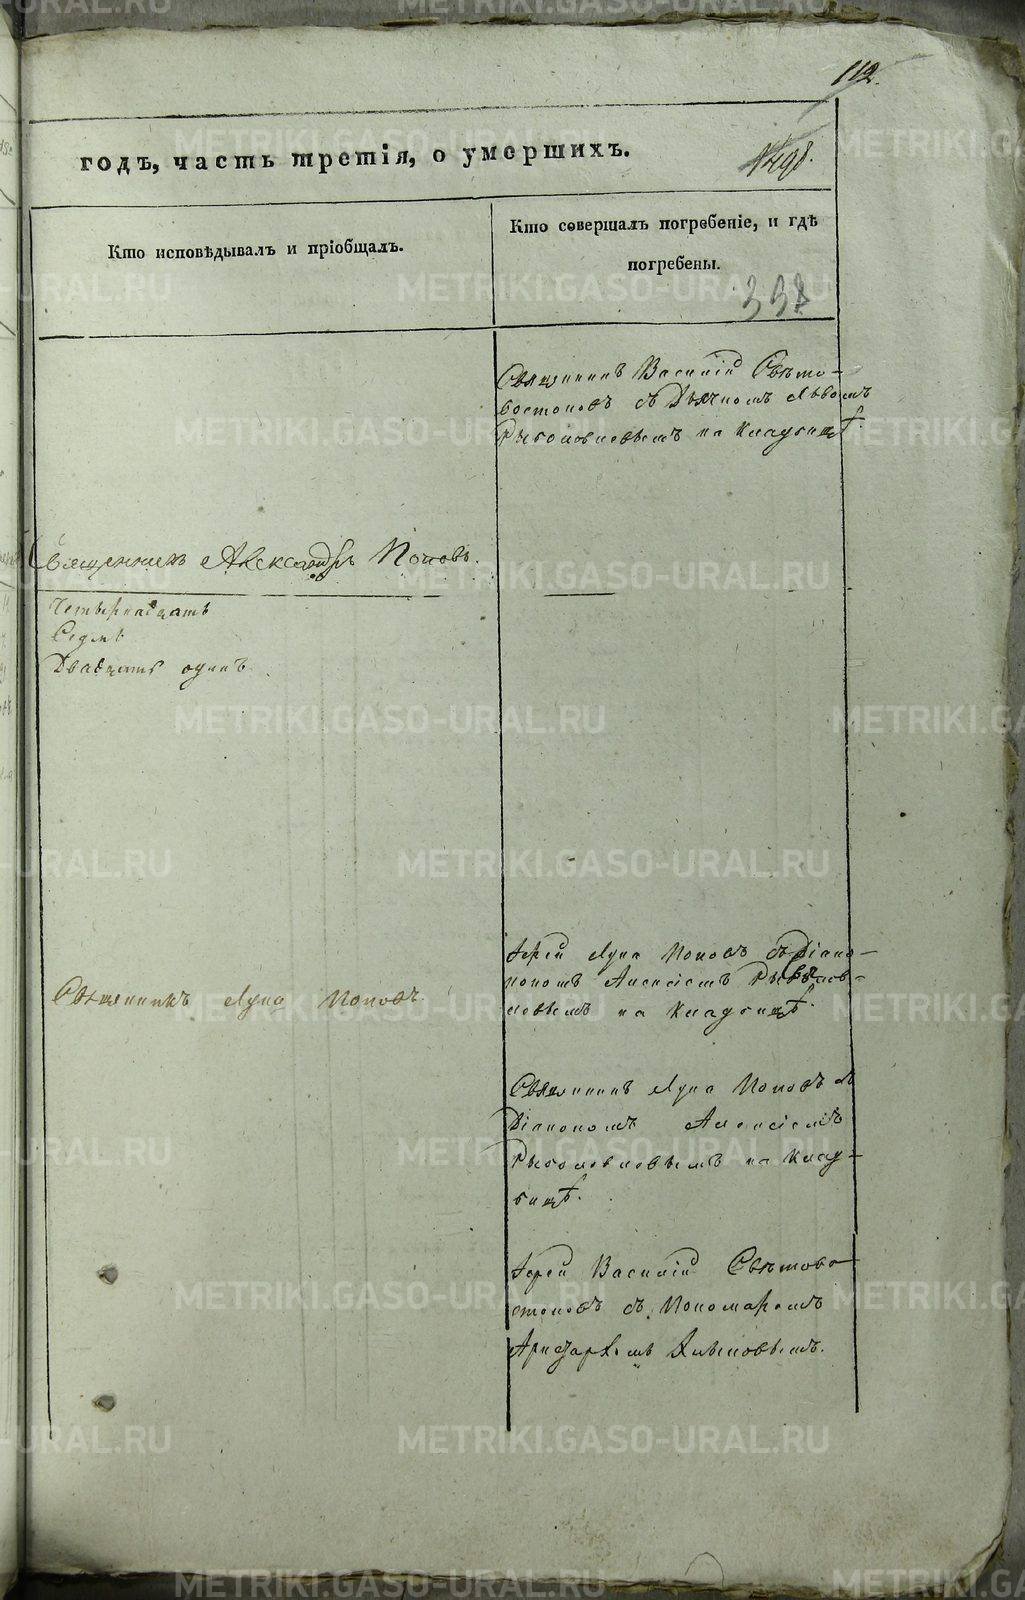 112.
годъ, часть третія, о умершихъ.
Кто исповѣдывалъ и пріобщалъ.
Кто совершалъ погребеніе, и гдѣ
погребены.
338
Священникъ Василій Свѣто-
востоковъ съ Дьячкомъ Львомъ
Рыболовлевымъ на кладбищѣ.
Священникъ Александръ Поповъ.
Четырнадцать
Седмь
Двадцать одинъ
Іерей Лука Поповъ съ Діако-
кономъ Алексіемъ Рыболов-
левымъ на кладбищѣ.
Священникъ Лука Поповъ
Священникъ Лука Поповъ съ
Діакономъ Алексіемъ
Рыболовлевымъ на клад-
бищѣ.
Іерей Василій Свѣтово-
стоковъ съ Пономаремъ
Аристархомъ
METRIKI.GASO-URAL.RU